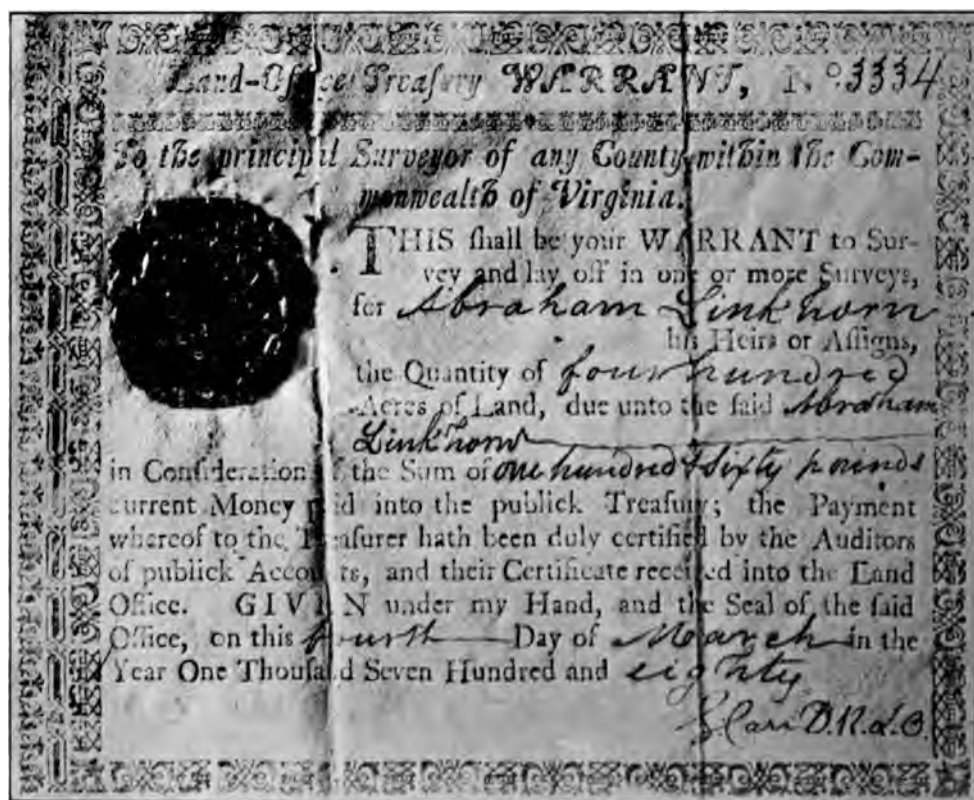 Land-Office Treasury WARRANT, No. 3334
To the principal Surveyor of any County within the Com-
monwealth of Virginia.
THIS ſhall be your WARRANT to Sur-
vey and lay off in one or more Surveys,
for Abraham Linkhorn
his Heirs or Aſſigns,
the Quantity of four hundred
Acres of Land, due unto the ſaid Abraham
Linkhorn
in Conſideration of the Sum of one hundred & sixty pounds
current Money paid into the publick Treaſury; the Payment
whereof to the Treaſurer hath been duly certified by the Auditors
of publick Accounts, and their Certificate received into the Land
Office. GIVEN under my Hand, and the Seal of the ſaid
Office, on this fourth Day of March in the
Year One Thouſand Seven Hundred and eighty